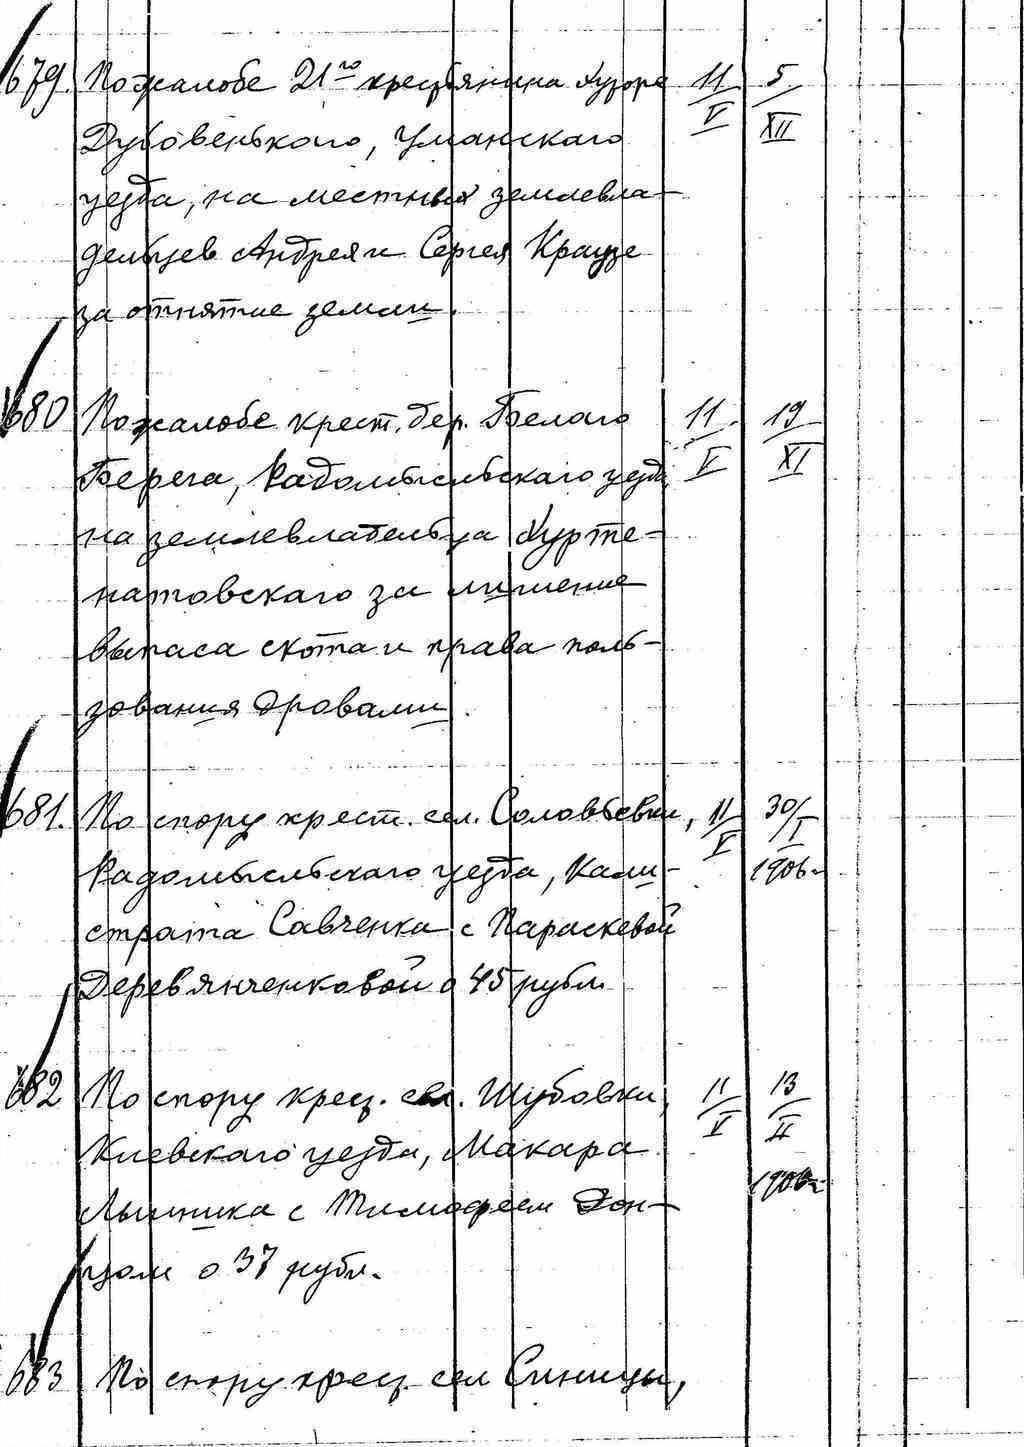 679. По жалобе 21го крестьянина хутора 11/V 5/XII
Дубовенького, Уманскаго
уезда, на местных землевла-
дельцев Андрея и Сергея Краузе
за отнятие земли.
680 По жалобе крест. дер. Белаго 11/V 19/XI
Берега, Радомысльскаго уезда,
на землевладельца Курте-
натовскаго за лишение
выпаса скота и права поль-
зования дровами.
681. По спору крест. сел. Соловьевки, 11/V 30/I 1906 г.
Радомысльскаго уезда, Кали-
страта Савченка с Параскевой
Деревянченковой о 45 рубл.
682 По спору крес. сел. Шубовки, 11/V 13/II 1906 г.
Киевскаго уезда, Макара
Лысника с Тимофеем Дон-
цом о 37 рубл.
683 По спору крес. сел Синицы,